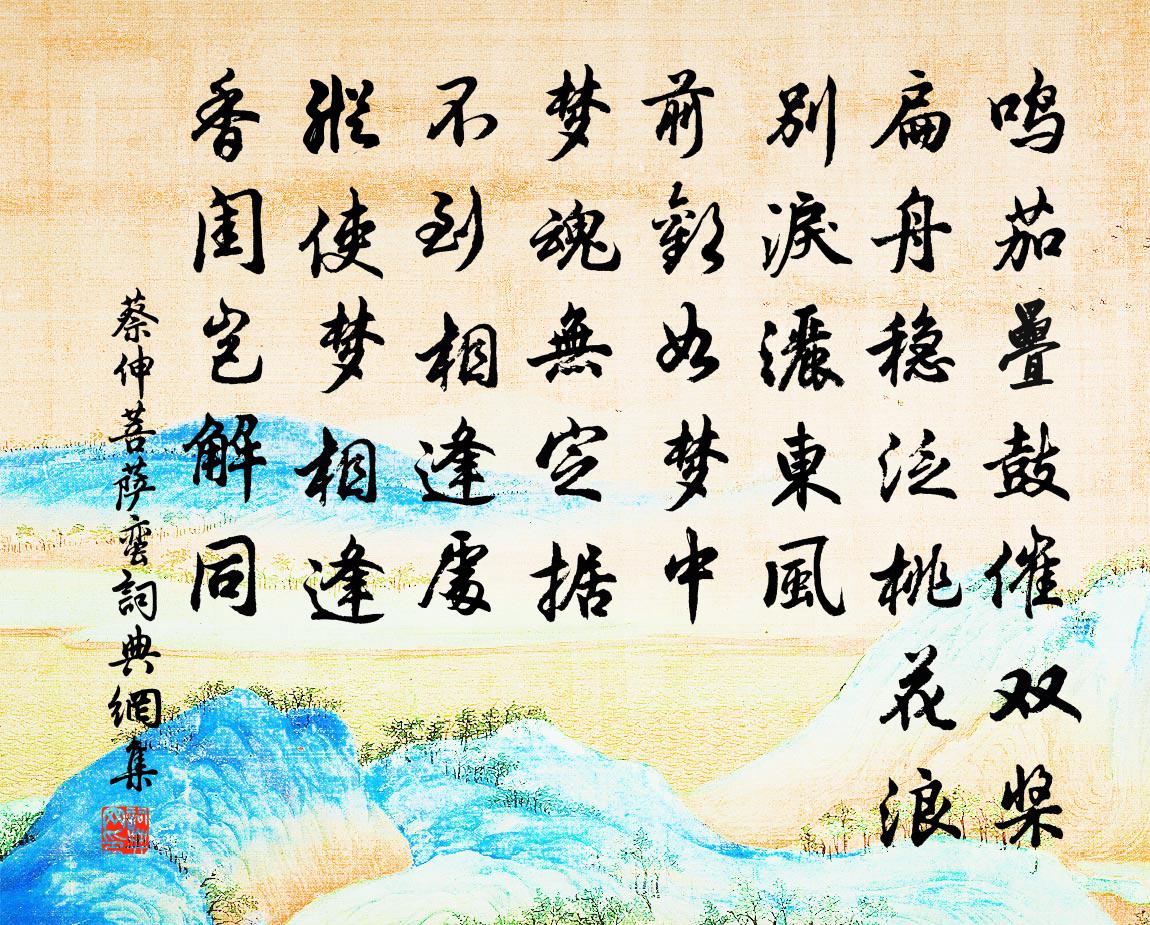 鸣茄疊鼓催双桨
扁舟稳泛桃花浪
别淚灑東風
前歡如梦中
梦魂無定据
不到相逢處
縱使梦相逢
香闺岂解同
蔡伸菩萨蛮詞典網集